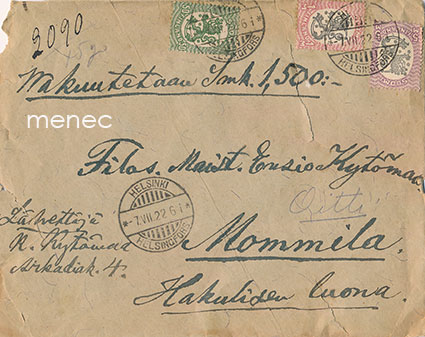 2090
Vakuutetaan Smk. 1,500:-
menec
Filos. Maist. Ensio Kytömaa
HELSINKI
-7.VII.22.6 i
HELSINGFORS
Oitti
Lähettäjä
R. Kytömaa
Arkadiak. 4.
Mommila.
Hakulisen luona.